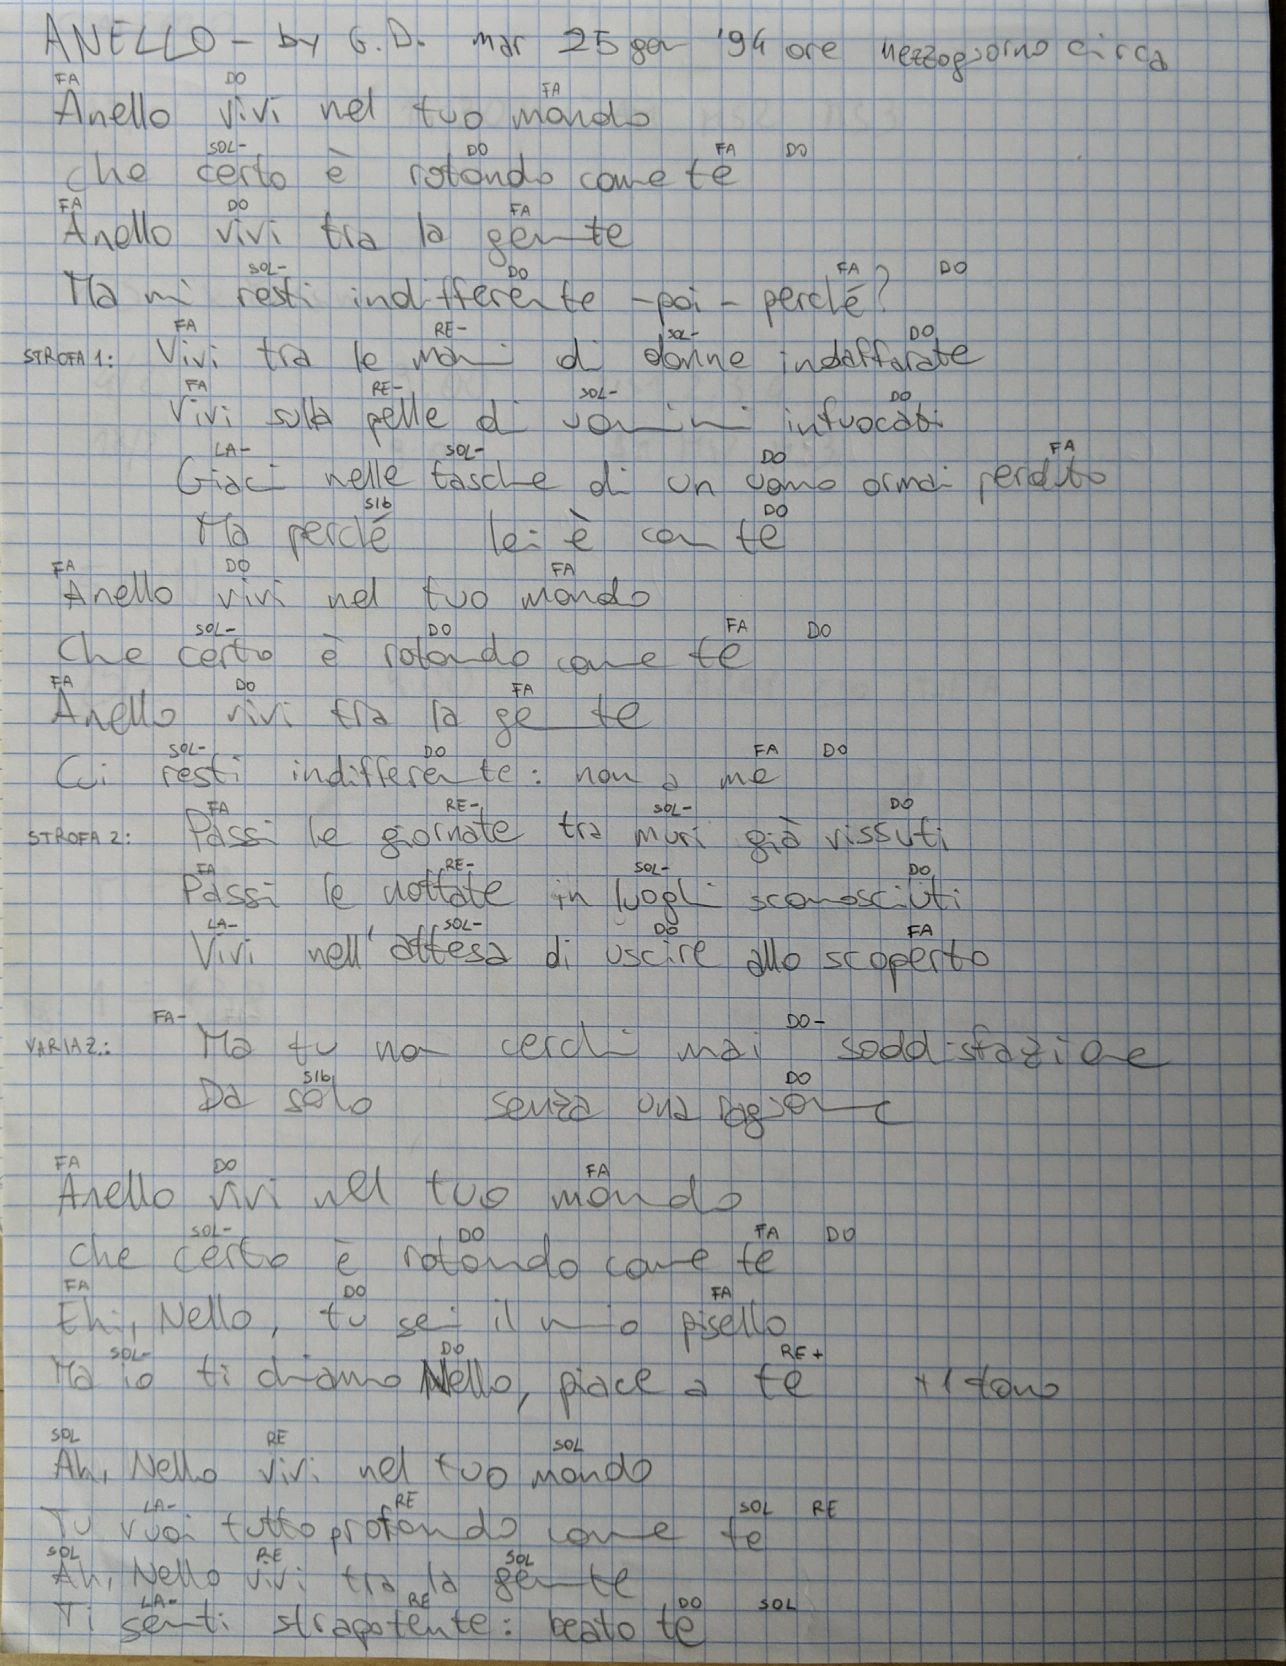 ANELLO - by G.D. mar 25 gen '94 ore mezzogiorno circa
FA DO FA
Anello vivi nel tuo mondo
SOL- DO FA DO
che certo è rotondo come te
FA DO FA
Anello vivi tra la gente
SOL- DO FA DO
Ma mi resti indifferente - poi - perché?
FA RE- SOL- DO
STROFA 1: Vivi tra le mani di donne indaffarate
FA RE- SOL- DO
Vivi sulla pelle di uomini infuocati
LA- SOL- DO FA
Giaci nelle tasche di un uomo ormai perduto
SIb DO
Ma perché lei è con te
FA DO FA
Anello vivi nel tuo mondo
SOL- DO FA DO
Che certo è rotondo come te
FA DO FA
Anello vivi tra la gente
SOL- DO FA DO
Cui resti indifferente: non a me
FA RE- SOL- DO
STROFA 2: Passi le giornate tra muri già vissuti
FA RE- SOL- DO
Passi le nottate in luoghi sconosciuti
LA- SOL- DO FA
Vivi nell'attesa di uscire allo scoperto
FA- DO-
VARIAZ.: Ma tu non cerchi mai soddisfazione
SIb DO
Da solo senza una ragione
FA DO FA
Anello vivi nel tuo mondo
SOL- DO FA DO
che certo è rotondo come te
FA DO FA
Ehi, Nello, tu sei il mio pisello
SOL- DO RE+
Ma io ti chiamo Nello, piace a te +1 tono
SOL RE SOL
Ah, Nello vivi nel tuo mondo
LA- RE SOL RE
Tu vuoi tutto profondo come te
SOL RE SOL
Ah, Nello vivi tra la gente
LA- RE DO SOL
Ti senti strapotente: beato te